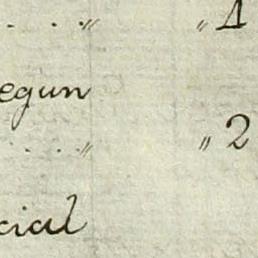 . . . . „ „ 1
egun
. . . . „ „ 2
cial